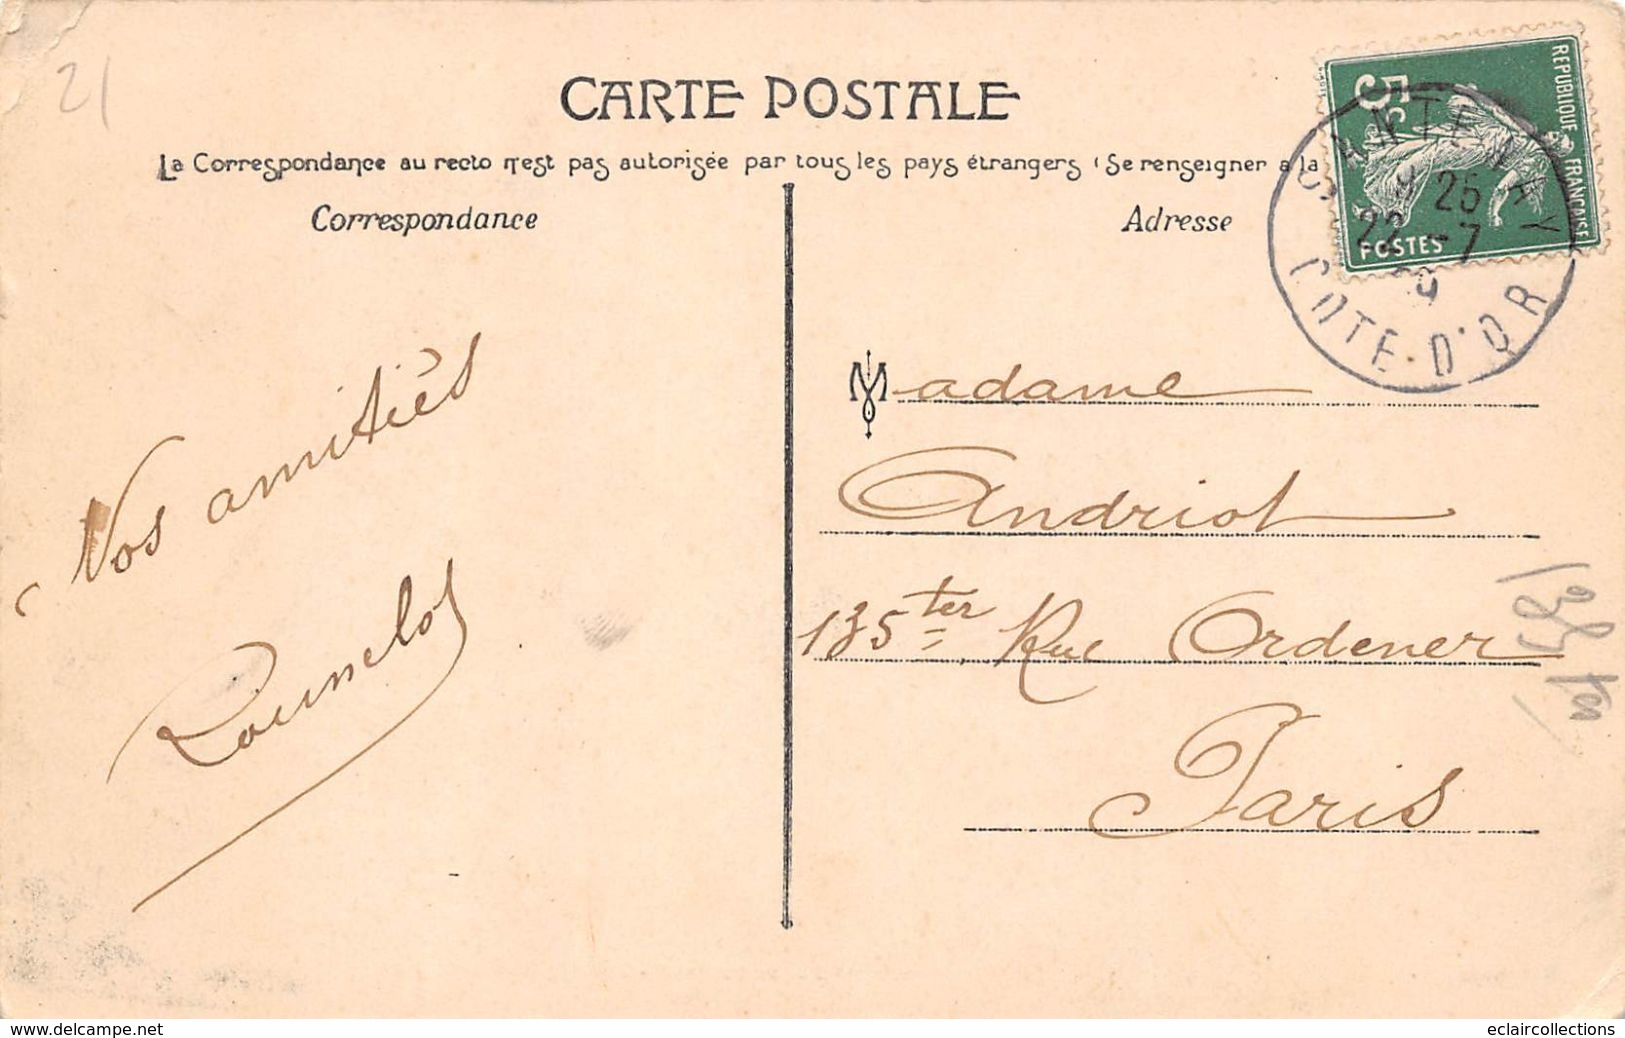 21
CARTE POSTALE
La Correspondance au recto n'est pas autorisée par tous les pays étrangers (Se renseigner a la
Correspondance
Adresse
REPUBLIQUE FRANÇAISE
5c
POSTES
SANTENAY
25
22 - 7
COTE-D'OR
Nos amitiés
Madame
Andriot
135 ter Rue Ordener
Paris
www.delcampe.net
eclaircollections